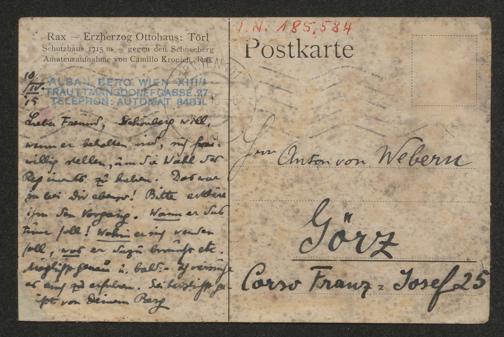 I.N. 185,584
Rax — Erzherzog Ottohaus: Törl
Schutzhaus 1715 m — gegen den Schneeberg
Amateuraufnahme von Camillo Kronich, Rax
Postkarte
10/
IV
15
ALBAN BERG WIEN XIII/1
TRAUTTMANSDORFFGASSE 27
TELEPHON: AUTOMAT 84831
Lieber Freund, Schönberg will,
wenn er behalten wird, sich frei-
willig stellen, um die Wahl des
Regiments zu haben. Das war
ja bei Dir ebenso! Bitte erkläre
ihm den Vorgang. Wann er das
tun soll! Wohin er sich wenden
soll, was er dazu braucht etc.
Möglichst genau u. bald.
er auch zu erfahren. Sei herzlichst ge-
üßt von Deinem Berg
Herrn Anton von Webern
Görz
Corso Franz-Josef 25